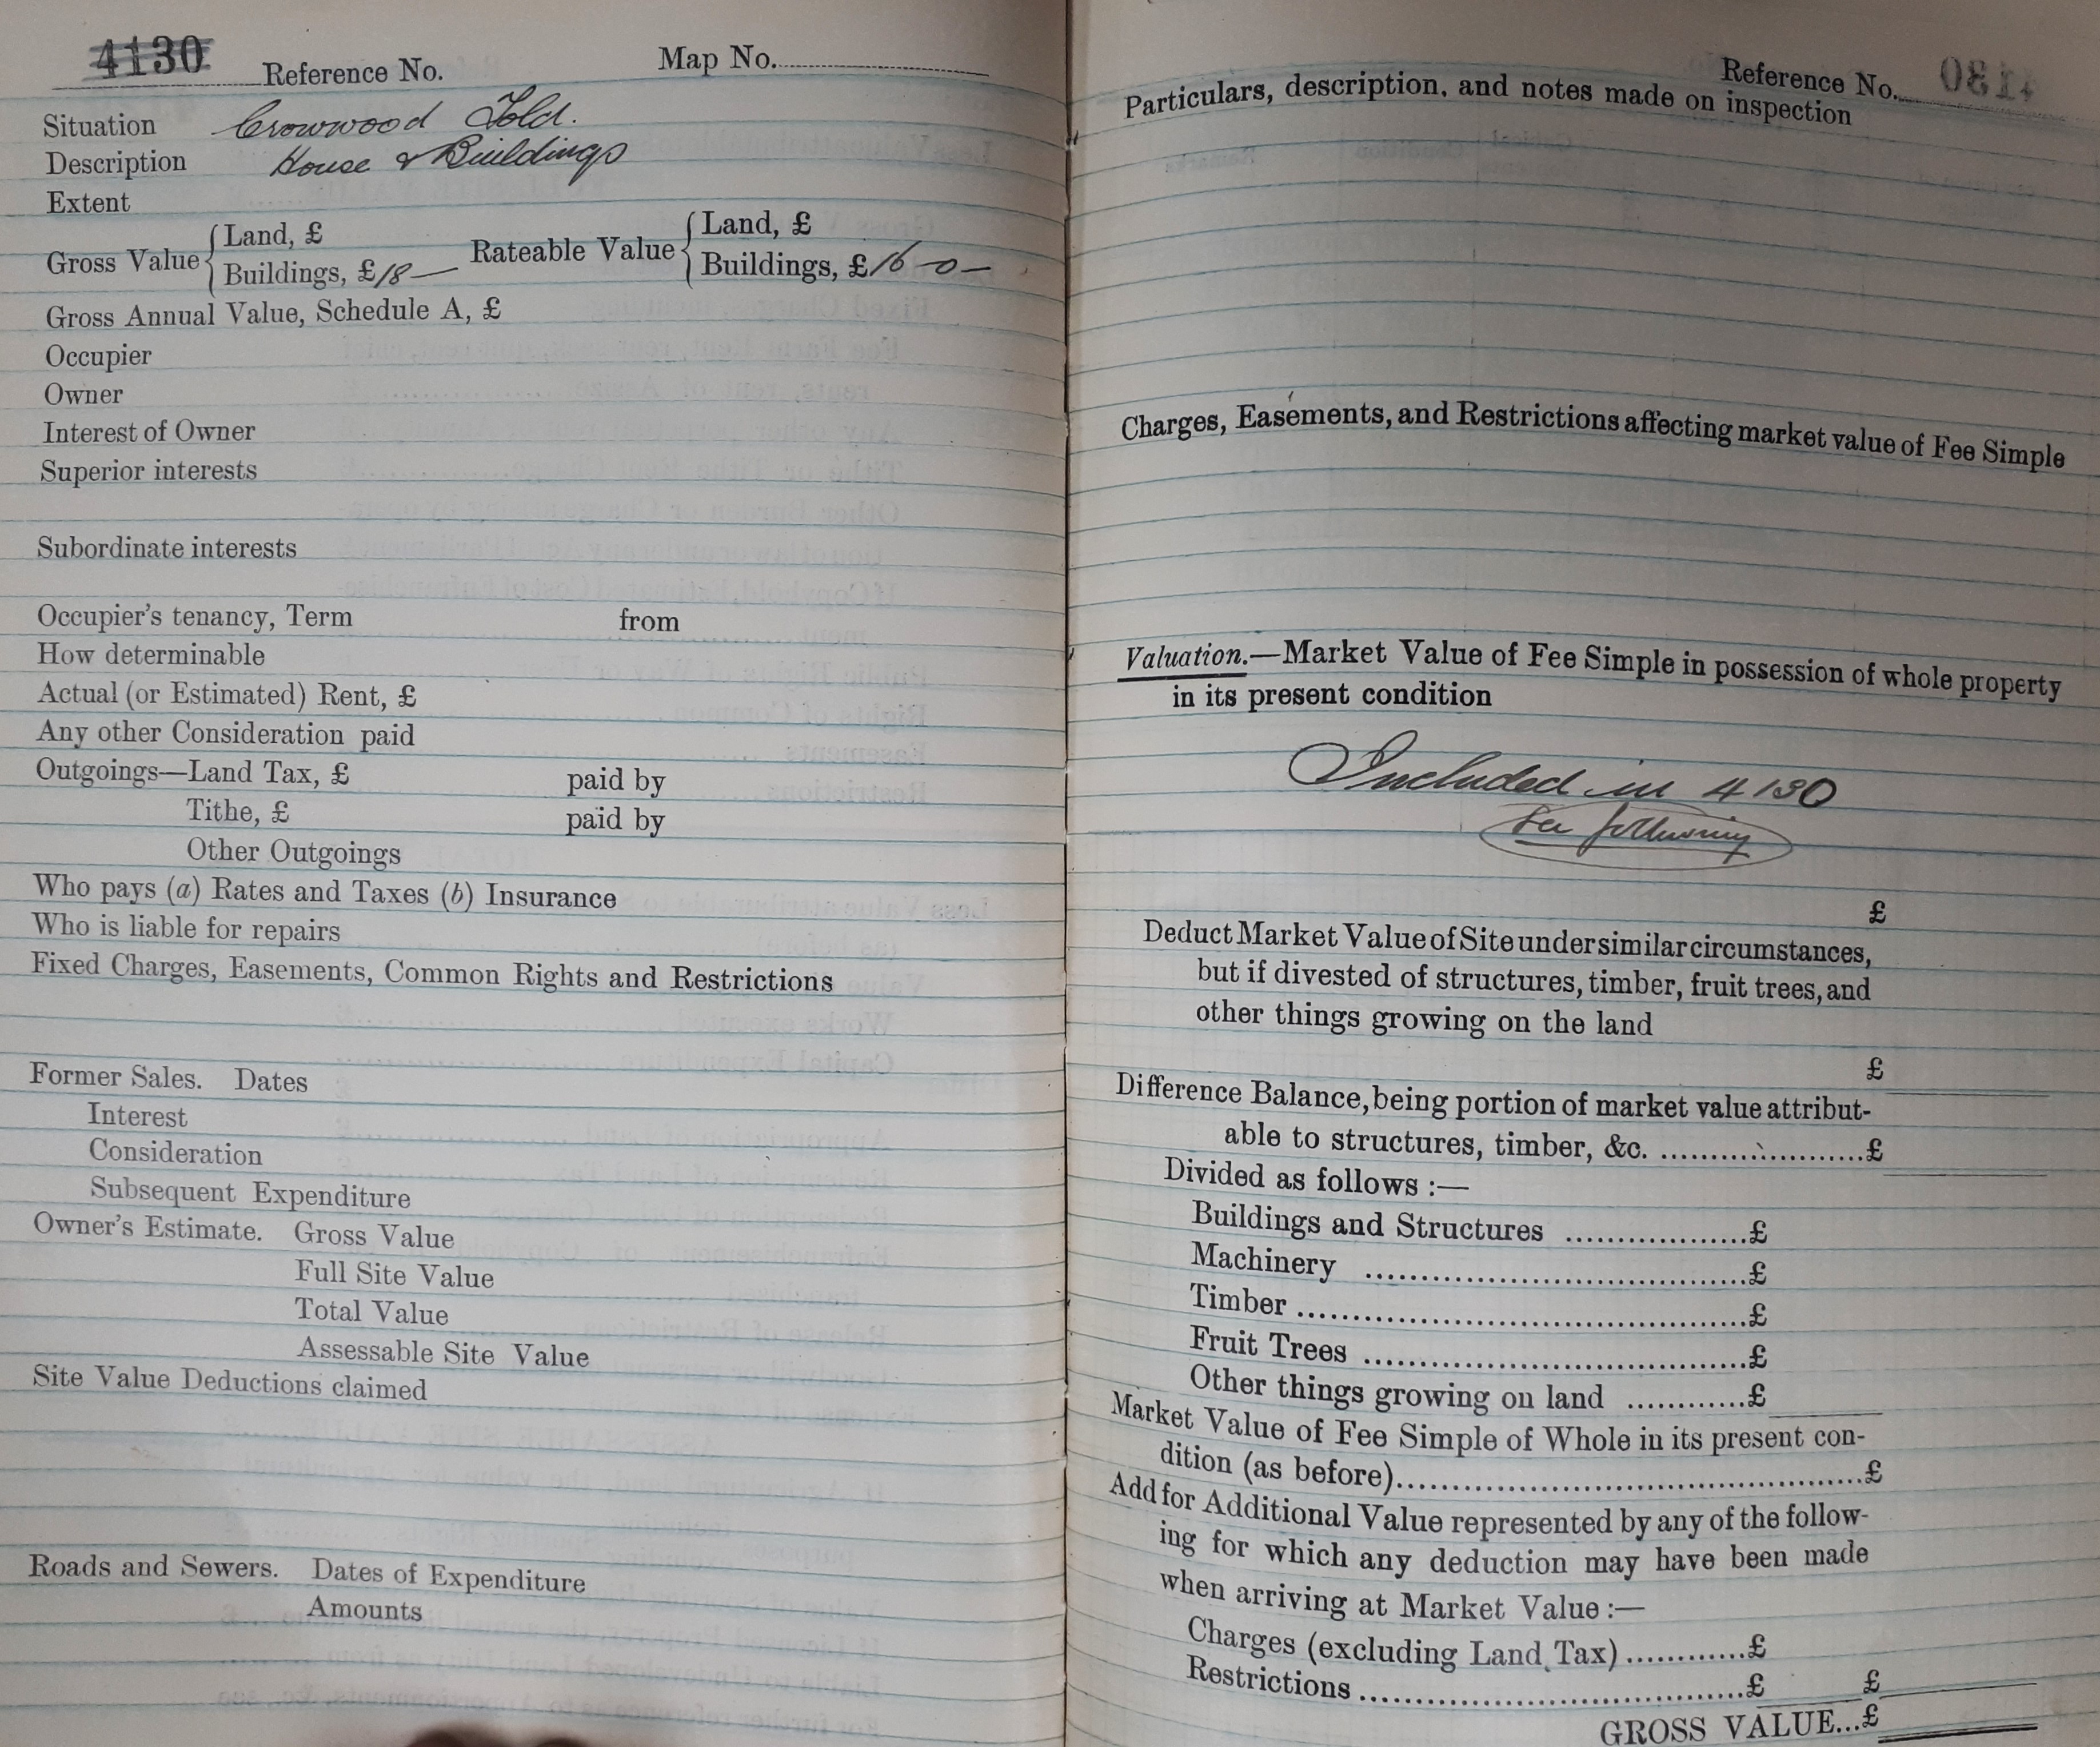 4130 Reference No. Map No.
Situation Crowwood Fold.
Description House & Buildings
Extent
Gross Value { Land, £ Rateable Value { Land, £
Buildings, £18— Buildings, £16-0-
Gross Annual Value, Schedule A, £
Occupier
Owner
Interest of Owner
Superior interests
Subordinate interests
Occupier's tenancy, Term from
How determinable
Actual (or Estimated) Rent, £
Any other Consideration paid
Outgoings—Land Tax, £ paid by
Tithe, £ paid by
Other Outgoings
Who pays (a) Rates and Taxes (b) Insurance
Who is liable for repairs
Fixed Charges, Easements, Common Rights and Restrictions
Former Sales. Dates
Interest
Consideration
Subsequent Expenditure
Owner's Estimate. Gross Value
Full Site Value
Total Value
Assessable Site Value
Site Value Deductions claimed
Roads and Sewers. Dates of Expenditure
Amounts
Reference No.
Particulars, description, and notes made on inspection
Charges, Easements, and Restrictions affecting market value of Fee Simple
Valuation.—Market Value of Fee Simple in possession of whole property
in its present condition
Included in 4130
See following
£
Deduct Market Value of Site under similar circumstances,
but if divested of structures, timber, fruit trees, and
other things growing on the land
£
Difference Balance, being portion of market value attribut-
able to structures, timber, &c. ......................£
Divided as follows :—
Buildings and Structures ..................£
Machinery ......................................£
Timber .............................................£
Fruit Trees ......................................£
Other things growing on land ............£
Market Value of Fee Simple of Whole in its present con-
dition (as before)..............................................£
Add for Additional Value represented by any of the follow-
ing for which any deduction may have been made
when arriving at Market Value :—
Charges (excluding Land Tax) ............£
Restrictions ......................................£ £
GROSS VALUE...£